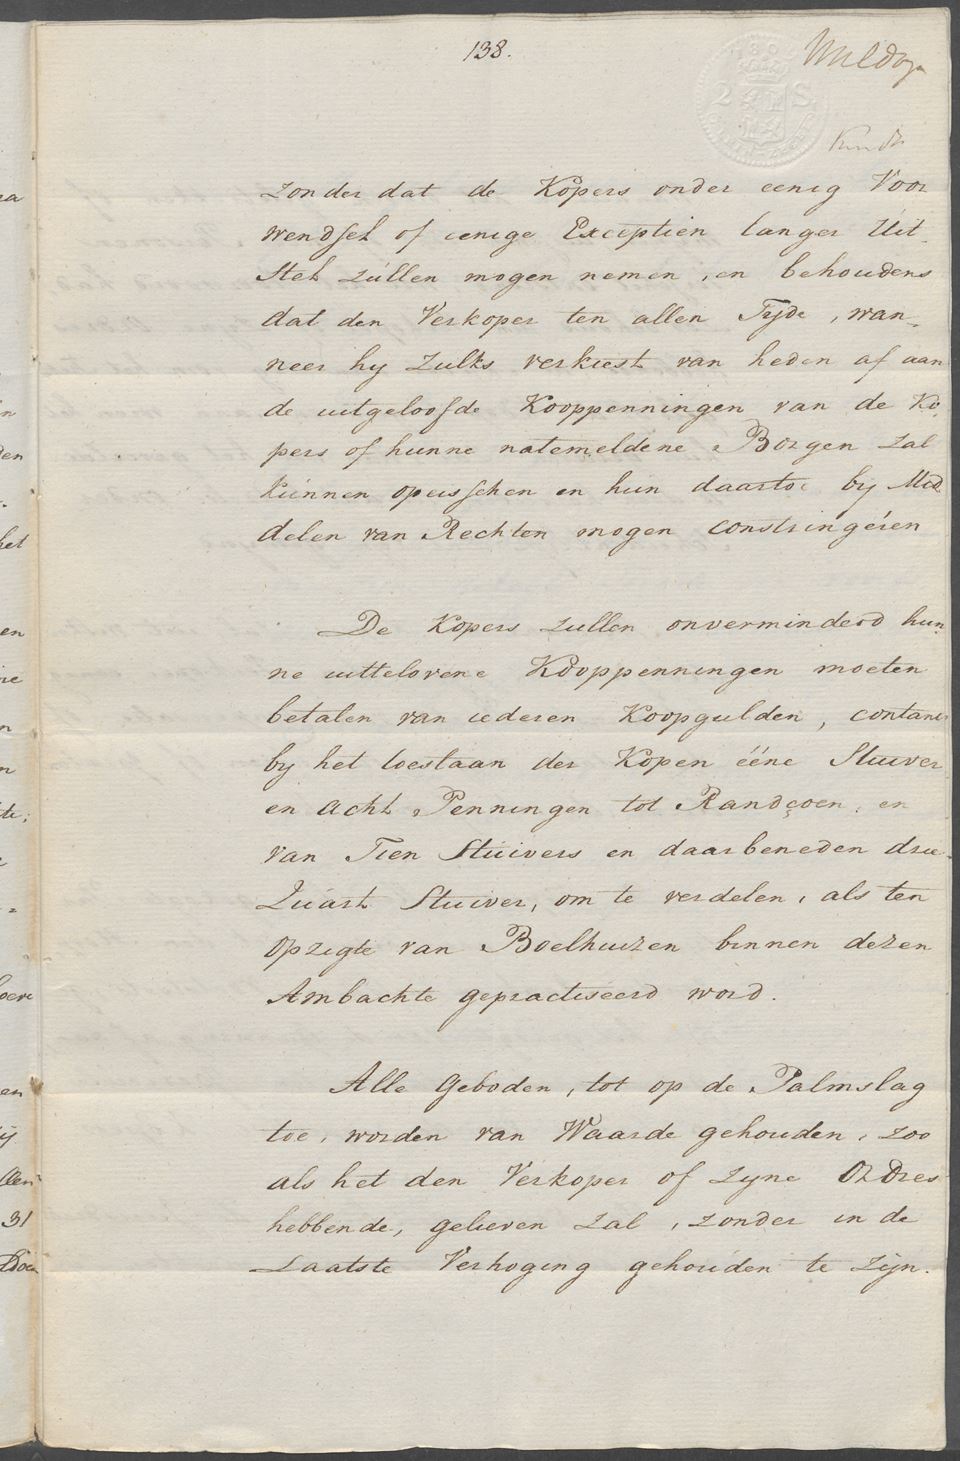 138.
zonder dat de Kopers onder eenig Voor
wendsel of eenige Exceptien langer Uit-
stel zullen mogen nemen, en behoudens
dat den Verkoper ten allen Tyde, wan-
neer hy zulks verkiest van heden af aan
de uitgeloofde Kooppenningen van de Ko-
pers of hunne natemeldene Borgen zal
kunnen opeisschen en hun daartoe by Mid-
delen van Rechten mogen constringéren
De Kopers zullen onverminderd hun-
ne uittelovene Kooppenningen moeten
betalen van iederen Koopgulden, contant
by het toestaan der Kopen ééne Stuiver
en acht Penningen tot Randçoen, en
van Tien Stuivers en daarbeneden drie
Quart Stuiver, om te verdelen, als ten
opzigte van Boelhuizen binnen dezen
Ambachte gepractiseerd word.
Alle Geboden, tot op de Palmslag
toe, worden van Waarde gehouden, zoo
als het den Verkoper of zyne Ordres
hebbende, gelieven zal, zonder in de
Laatste Verhoging gehouden te zijn.